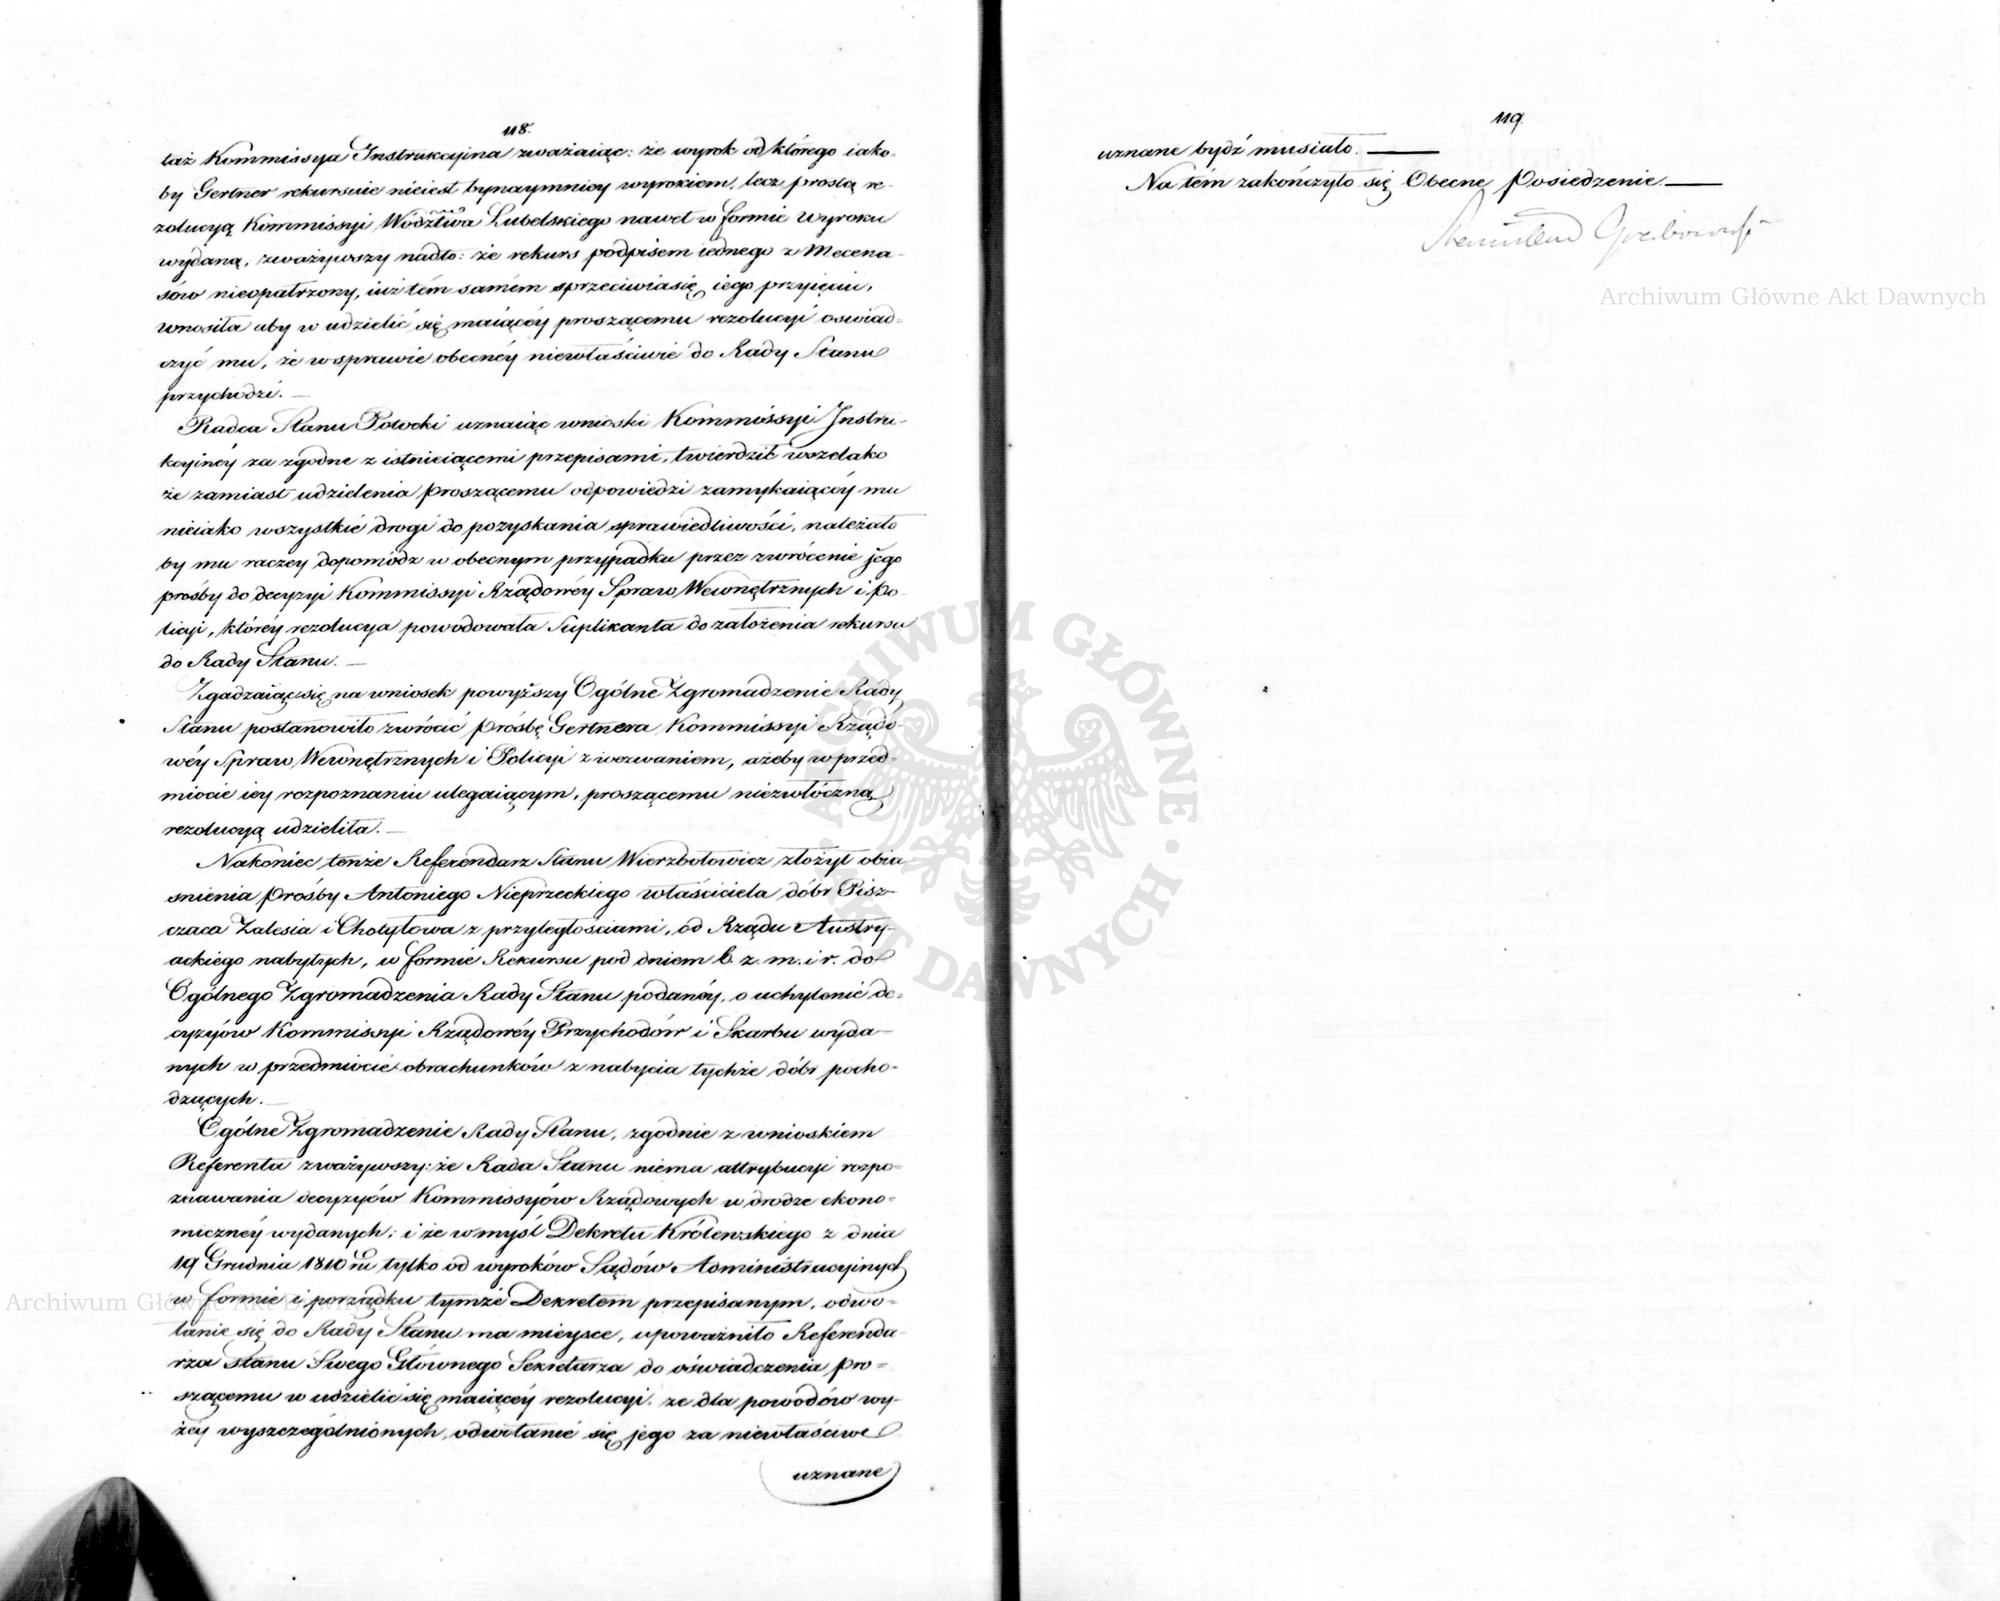 118.
taż Kommissya Instrukcyina zważaiąc: że wyrok od którego iako-
by Gertner rekursuie nieiest bynaymniey wyrokiem, lecz prostą re-
zolucyą Kommissyi Wódźtwa Lubelskiego nawet w formie wyroku
wydaną, zważywszy nadto: że rekurs podpisem iednego z Mecena-
sów nieopatrzony, iuż tém samém sprzeciwiasię iego przyięciu,
wnosiła aby w udzielić się maiącéy proszącemu rezolucyi oswiad-
czyć mu, że wsprawie obecnéy niewłaściwie do Rady Stanu
przychodzi. —
Radca Stanu Potocki uznaiąc wnioski Kommissyi Instru-
kcyinéy za zgodne z istnieiącemi przepisami, twierdził wszelako
że zamiast udzielenia proszącemu odpowiedzi zamykaiącéy mu
nieiako wszystkie drogi do pozyskania sprawiedliwości, należało
by mu raczey dopomódz w obecnym przypadku przez zwrócenie jego
prośby do decyzyi Kommissyi Rządowéy Spraw Wewnętrznych i Po-
licyi, któréy rezolucya powodowała Suplikanta do założenia rekursu
do Rady Stanu. —
Zgadzaiąc się na wniosek powyższy Ogólne Zgromadzenie Rady
Stanu postanowiło zwrócić prośbę Gertnera Kommissyi Rządo-
wéy Spraw Wewnętrznych i Policyi z wezwaniem, ażeby w przed-
miocie iey rozpoznaniu ulegaiącym, proszącemu niezwłóczną
rezolucyą udzieliła. —
Nakoniec tenże Referendarz Stanu Wierzbołowicz złożył obia-
snienia prośby Antoniego Nieprzeckiego właściciela dóbr Pisz-
czaca Zalesia i Chotyłowa z przyległościami, od Rządu Austry-
ackiego nabytych, w formie Rekursu pod dniem 6. z. m. i r. do
Ogólnego Zgromadzenia Rady Stanu podanéy, o uchylenie de-
cyzyów Kommissyi Rządowéy Przychodów i Skarbu wyda-
nych w przedmiocie obrachunków z nabycia tychże dóbr pocho-
dzących. —
Ogólne Zgromadzenie Rady Stanu, zgodnie z wnioskiem
Referenta zważywszy: że Rada Stanu niema attrybucyi rozpo-
znawania decyzyów Kommissyów Rządowych w drodze ekono-
micznéy wydanych; i że w myśl Dekretu Królewskiego z dnia
19 Grudnia 1810 ru tylko od wyroków Sądów Administracyinych
w formie i porządku tymże Dekretem przepisanym, odwo-
łanie się do Rady Stanu ma mieysce, upoważniło Referenda-
rza Stanu Swego Głównego Sekretarza do oświadczenia pro-
szącemu w udzielić się maiącéy rezolucyi, ze dla powodów wy-
żéy wyszczególnionych, odwołanie się jego za niewłaściwe
uznane
119
uznane bydź musiało. —
Na tém zakończyło się Obecne Posiedzenie. —
Stanisław Grabowski
Archiwum Główne Akt Dawnych
ARCHIWUM GŁÓWNE · AKT DAWNYCH ·
Archiwum Główne Akt Dawnych